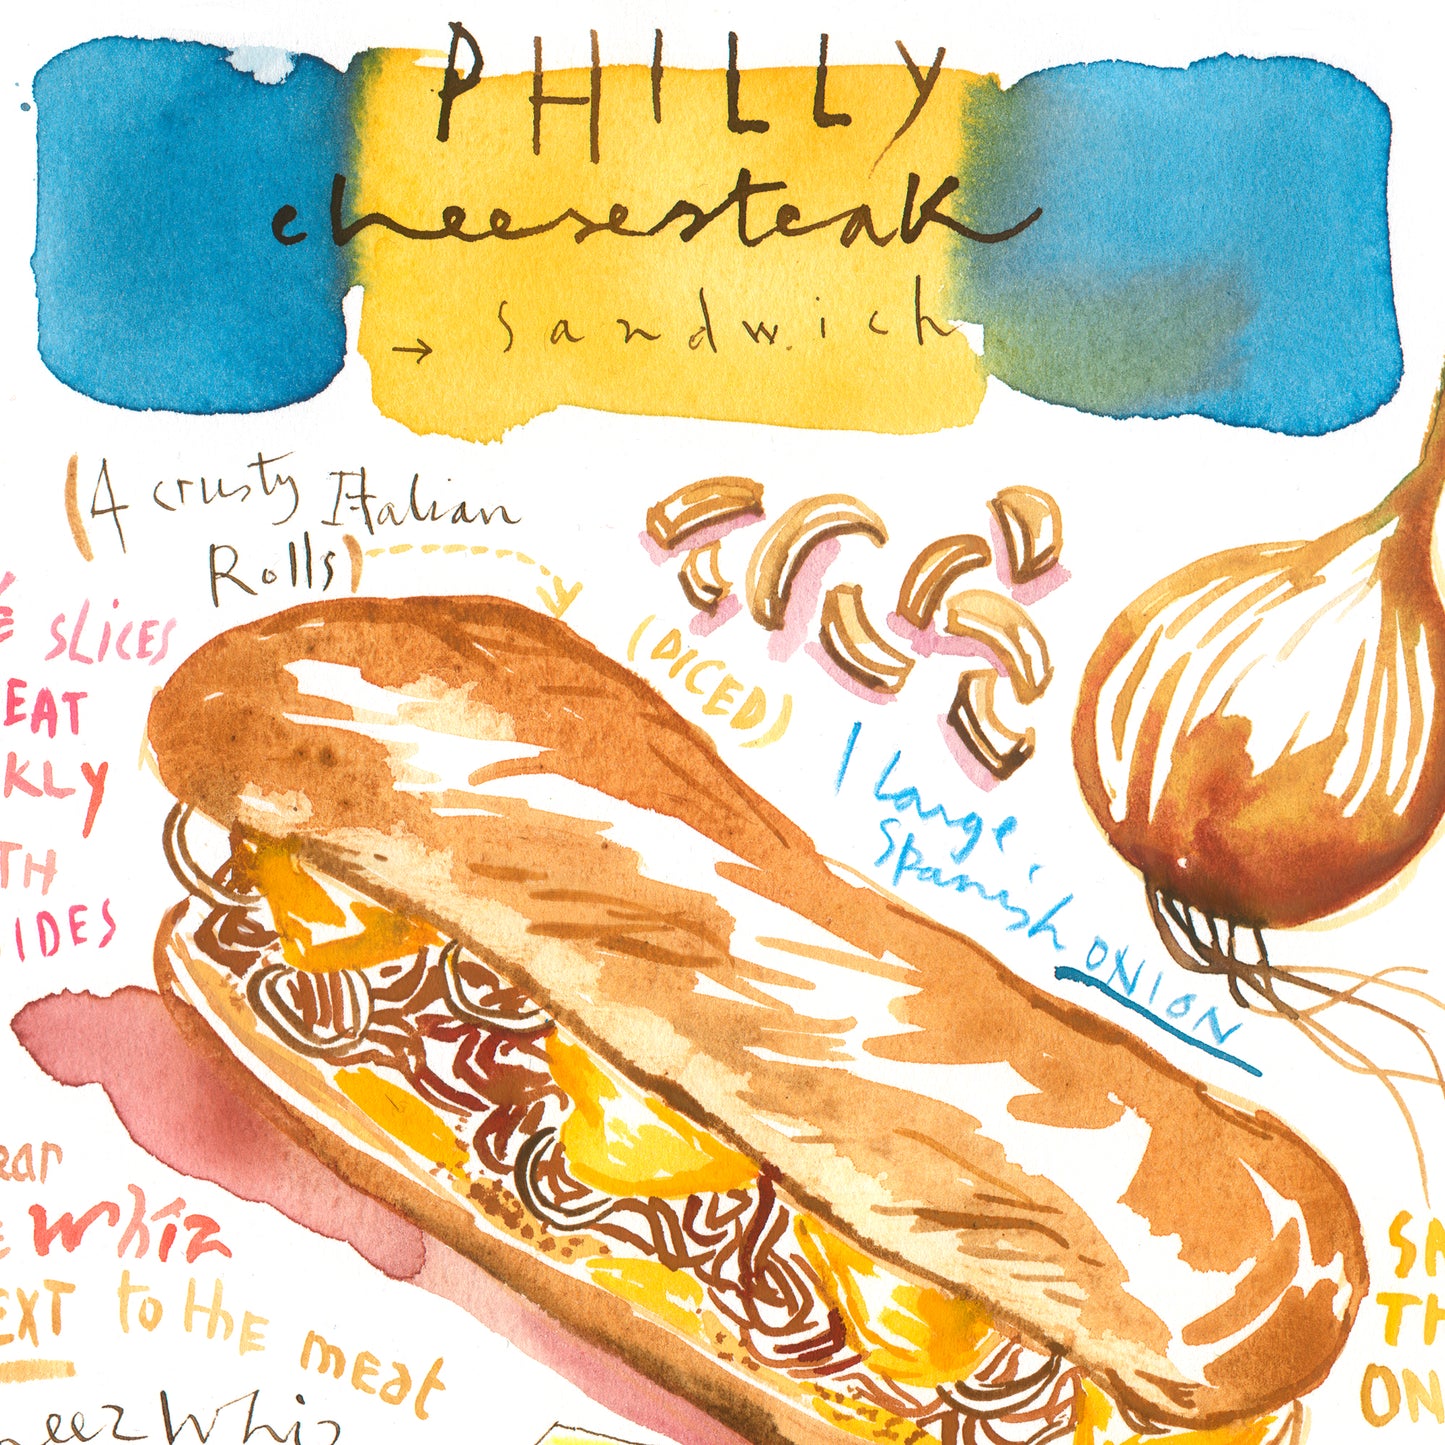 PHILLY
cheesesteak
→ sandwich
(A crusty Italian
Rolls)
(DICED)
1 Large,
Spanish
ONION
SLICES
EAT
KLY
TH
IDES
ear
E Whiz
EXT to tHE meat
eez Whiz
SA
TH
ON